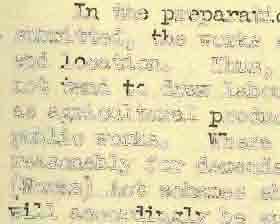 In the preparati
submitted, the works
and location. Thus,
not tend to draw labou
as agricultural produc
public works. Where
reasonably for demands
(Works) Act schemes
will accordingly be